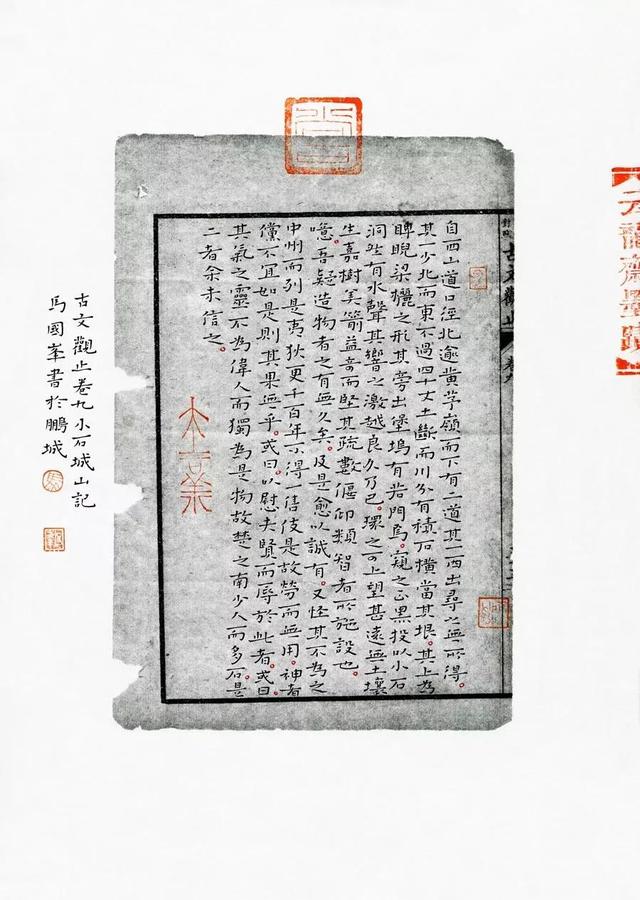 元龍齋墨蹟
古文觀止 卷九
自西山道口徑北逾黃茅嶺而下有二道其一西出尋之無所得。
其一少北而東不過四十丈土斷而川分有積石橫當其垠。其上為
睥睨梁欐之形其旁出堡塢有若門焉。窺之正黑投以小石
洞然有水聲其響之激越良久乃已。環之可上望甚遠無土壤
生嘉樹美箭益奇而堅其疏數偃仰類智者所施設也。
噫。吾疑造物者之有無久矣。及是愈以誠有。又怪其不為之
中州而列是夷狄更千百年不得一售伎是故勞而無用。神者
儻不宜如是則其果無乎。或曰。以慰夫賢而辱於此者。或曰
其氣之靈不為偉人而獨為是物故楚之南少人而多石。是
二者余未信之。
古文觀止卷九小石城山記
馬國峯書於鵬城